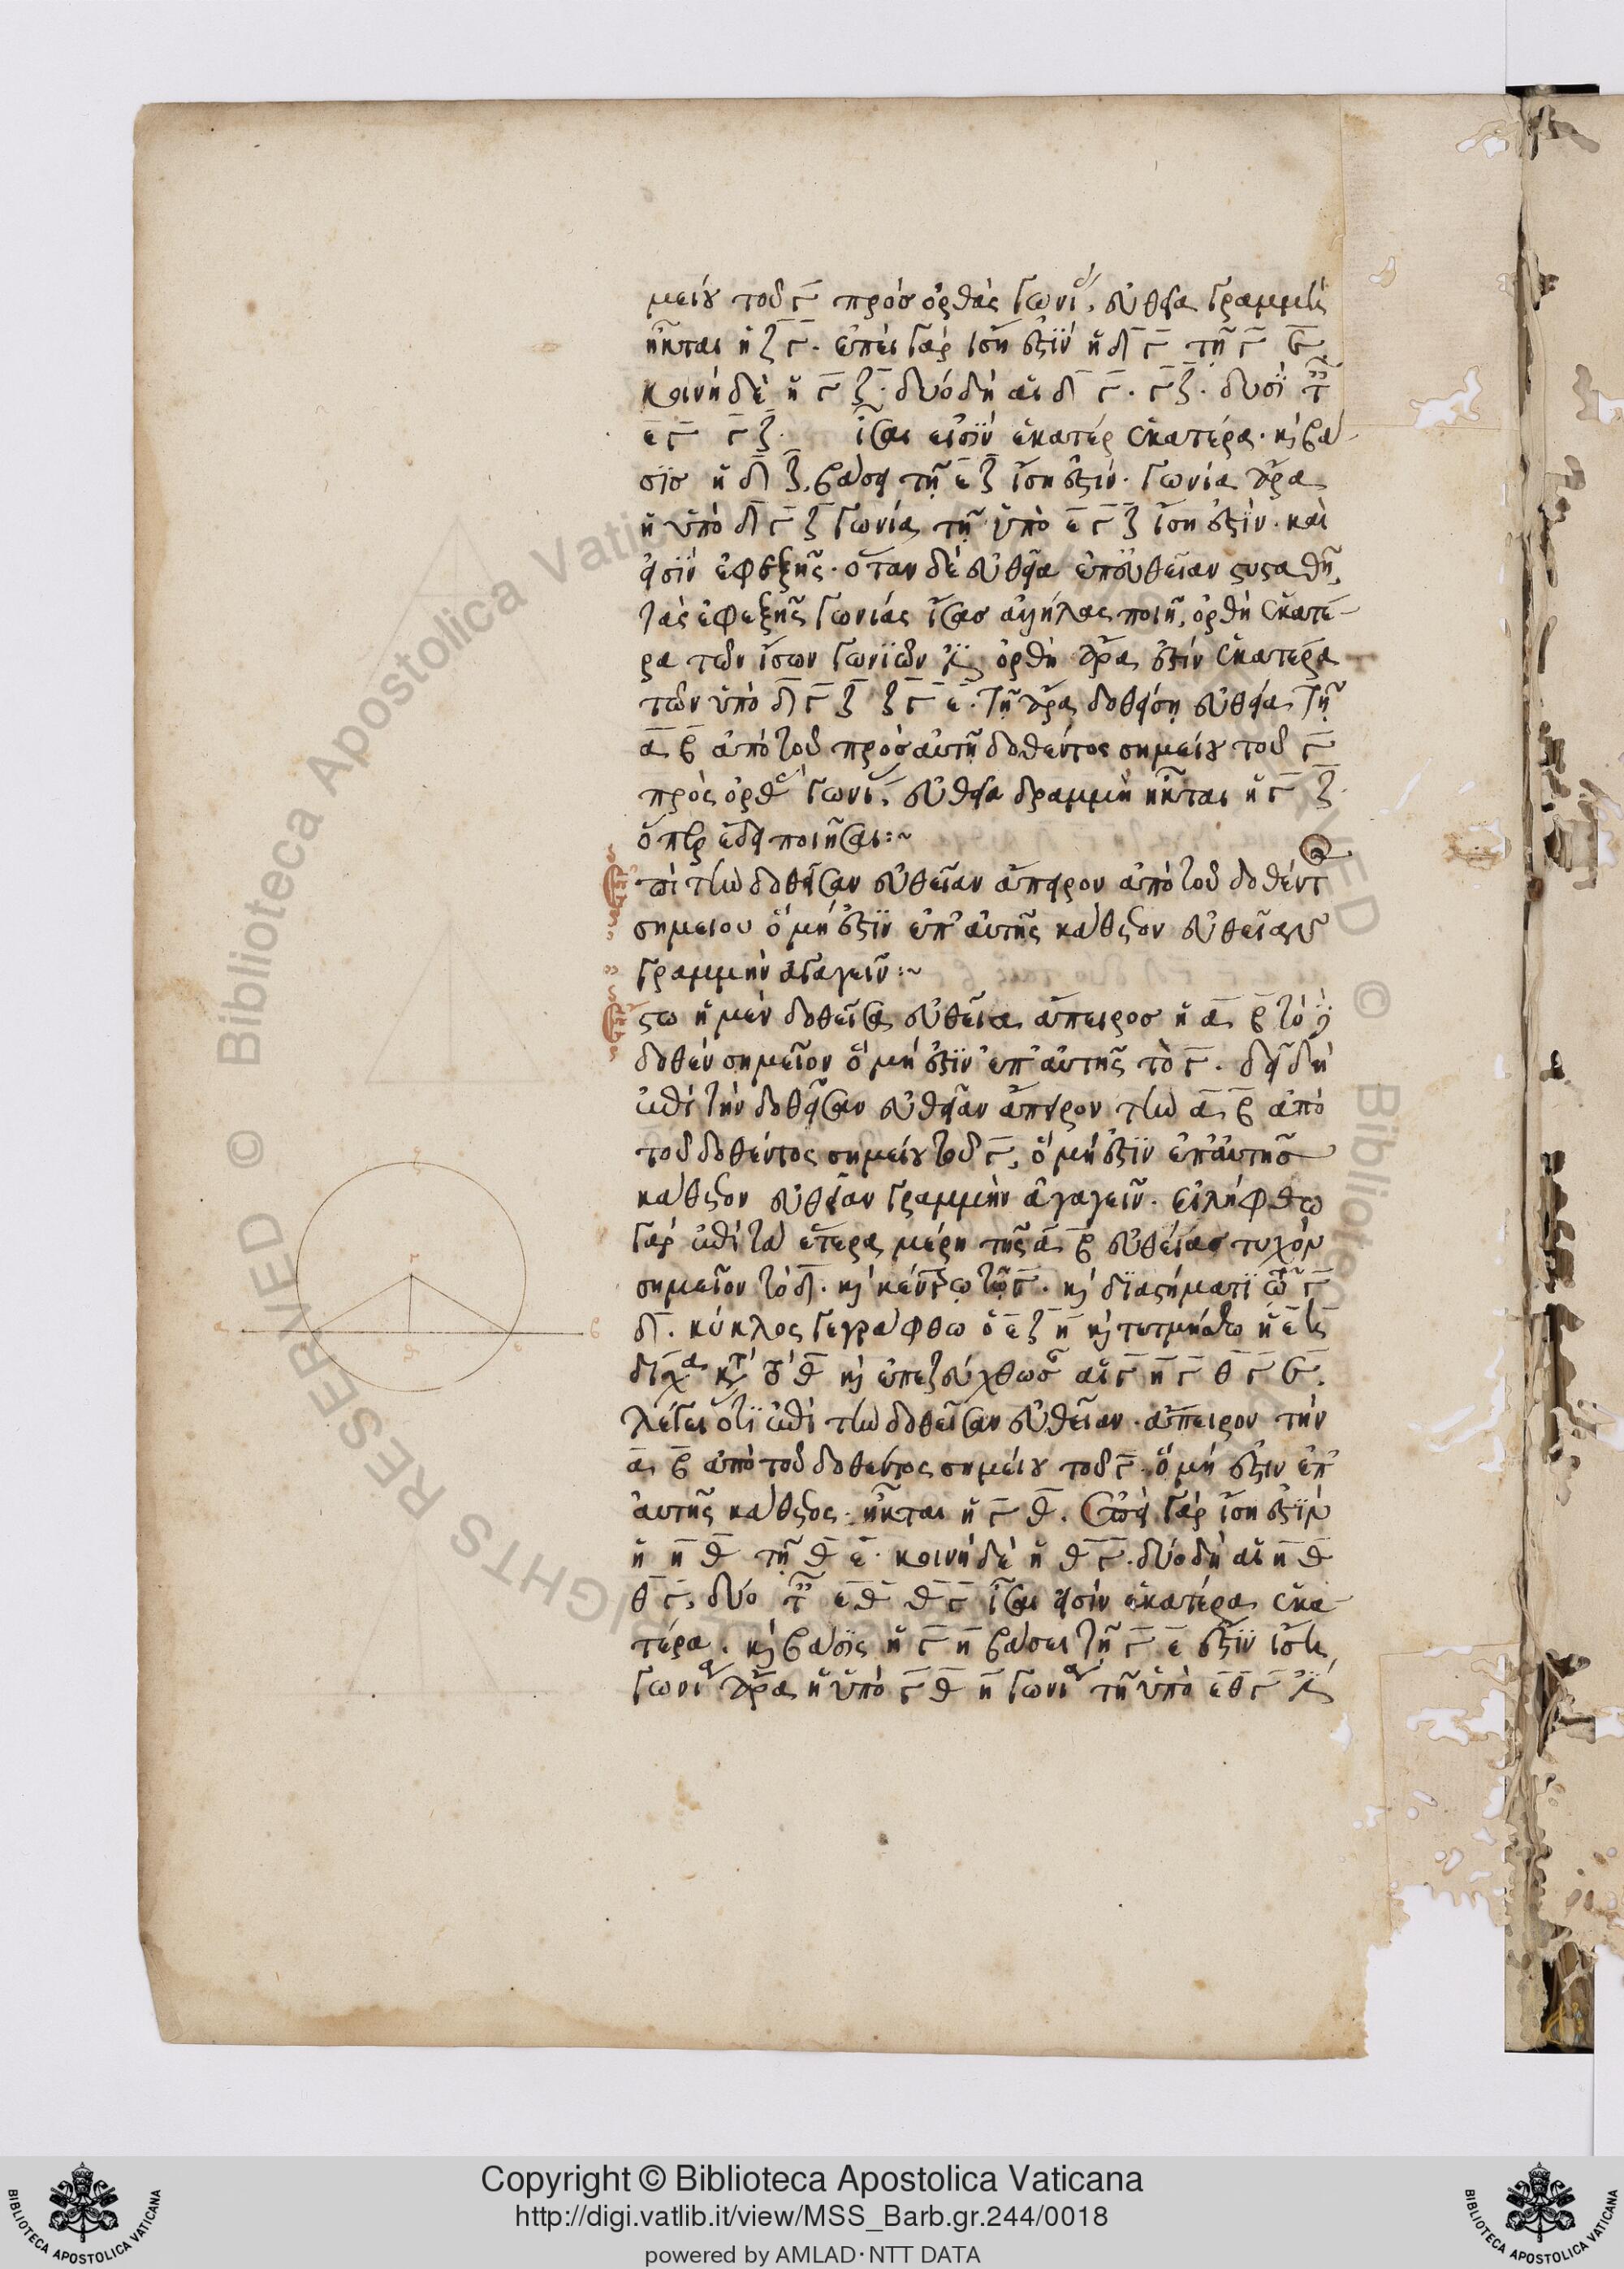 μείου τοῦ γ πρὸς ὀρθὰς γωνίας, εὐθεῖα γραμμὴ
ἦκται ἡ ζ γ. ἐπεὶ γὰρ ἴση ἐστὶν ἡ δ γ τῇ γ ε
κοινὴ δὲ ἡ γ ζ. δύο δὴ αἱ δ γ. γ ζ. δυσὶ ταῖς
ε γ γ ζ. ἴσαι εἰσὶν ἑκατέρα ἑκατέρα. καὶ βά-
σις ἡ δ ζ, βάσει τῇ ε ζ ἴση ἐστίν. γωνία ἄρα
ἡ ὑπὸ δ γ ζ γωνία τῇ ὑπὸ ε γ ζ ἴση ἐστὶν. καὶ
εἰσὶν ἐφεξῆς. ὅταν δὲ εὐθεῖα ἐπ' εὐθεῖαν συσταθῆ,
τὰς ἐφεξῆς γωνίας ἴσας ἀλλήλαις ποιῆ, ὀρθὴ ἑκατέ-
ρα τῶν ἴσων γωνιῶν ἐστί, ὀρθὴ ἄρα ἐστὶν ἑκατέρα
τῶν ὑπὸ δ γ ζ ζ γ ε. τῇ ἄρα δοθείση εὐθεία τῇ
α β ἀπὸ τοῦ πρὸς αὐτῇ δοθέντος σημείου τοῦ γ
πρὸς ὀρθὰς γωνίας, εὐθεῖα γραμμὴ ἦκται ἡ γ ζ
ὅπερ ἔδει ποιῆσαι:~
Ἐπὶ τὴν δοθεῖσαν εὐθεῖαν ἄπειρον ἀπὸ τοῦ δοθέντος
σημείου ὃ μή ἐστιν ἐπ' αὐτῆς κάθετον εὐθεῖαν
γραμμὴν ἀγαγεῖν:~
Ἔστω ἡ μὲν δοθεῖσα εὐθεῖα ἄπειρος ἡ α β τὸ δὲ
δοθὲν σημεῖον ὃ μή ἐστιν ἐπ' αὐτῆς τὸ γ. δεῖ δὴ
ἐπὶ τὴν δοθεῖσαν εὐθεῖαν ἄπειρον τὴν α β ἀπὸ
τοῦ δοθέντος σημείου τοῦ γ, ὃ μή ἐστιν ἐπ' αὐτῆς
κάθετον εὐθεῖαν γραμμὴν ἀγαγεῖν. εἰλήφθω
γὰρ ἐπὶ τὰ ἕτερα μέρη τῆς α β εὐθείας τυχὸν
σημεῖον τὸ δ. καὶ κέντρῳ τῷ γ. καὶ διαστήματι τῷ γ
δ. κύκλος γεγράφθω ὁ ε ζ η καὶ τετμήσθω ἡ ε η
δίχα κατὰ τὸ θ καὶ ἐπεζεύχθωσαν αἱ γ η γ θ γ ε.
λέγει ὅτι ἐπὶ τὴν δοθεῖσαν εὐθεῖαν. ἄπειρον τὴν
α β ἀπὸ τοῦ δοθέντος σημείου τοῦ γ. ὃ μή ἐστιν ἐπ'
αὐτῆς κάθετος. ἦκται ἡ γ θ. ἐπεὶ γὰρ ἴση ἐστὶν
ἡ η θ τῇ θ ε. κοινὴ δὲ ἡ θ γ. δύο δὴ αἱ η θ
θ γ, δύο ταῖς ε θ θ γ ἴσαι εἰσὶν ἑκατέρα ἑκα-
τέρα. καὶ βάσις ἡ γ η βάσει τῇ γ ε ἐστὶν ἴση
γωνία ἄρα ἡ ὑπὸ γ θ η γωνία τῇ ὑπὸ ε θ γ ἐστί
α
β
γ
δ
ε
ζ
Copyright © Biblioteca Apostolica Vaticana
http://digi.vatlib.it/view/MSS_Barb.gr.244/0018
powered by AMLAD·NTT DATA
BIBLIOTECA APOSTOLICA VATICANA
BIBLIOTECA APOSTOLICA VATICANA